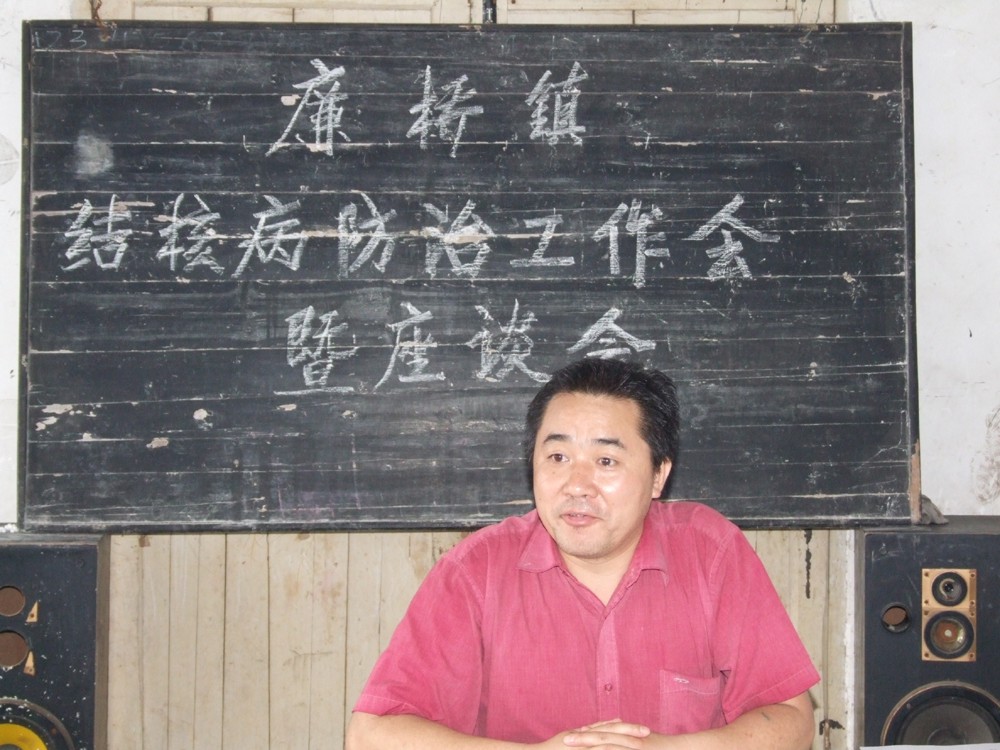 廉桥鎮
结核病防治工作会
暨座谈会